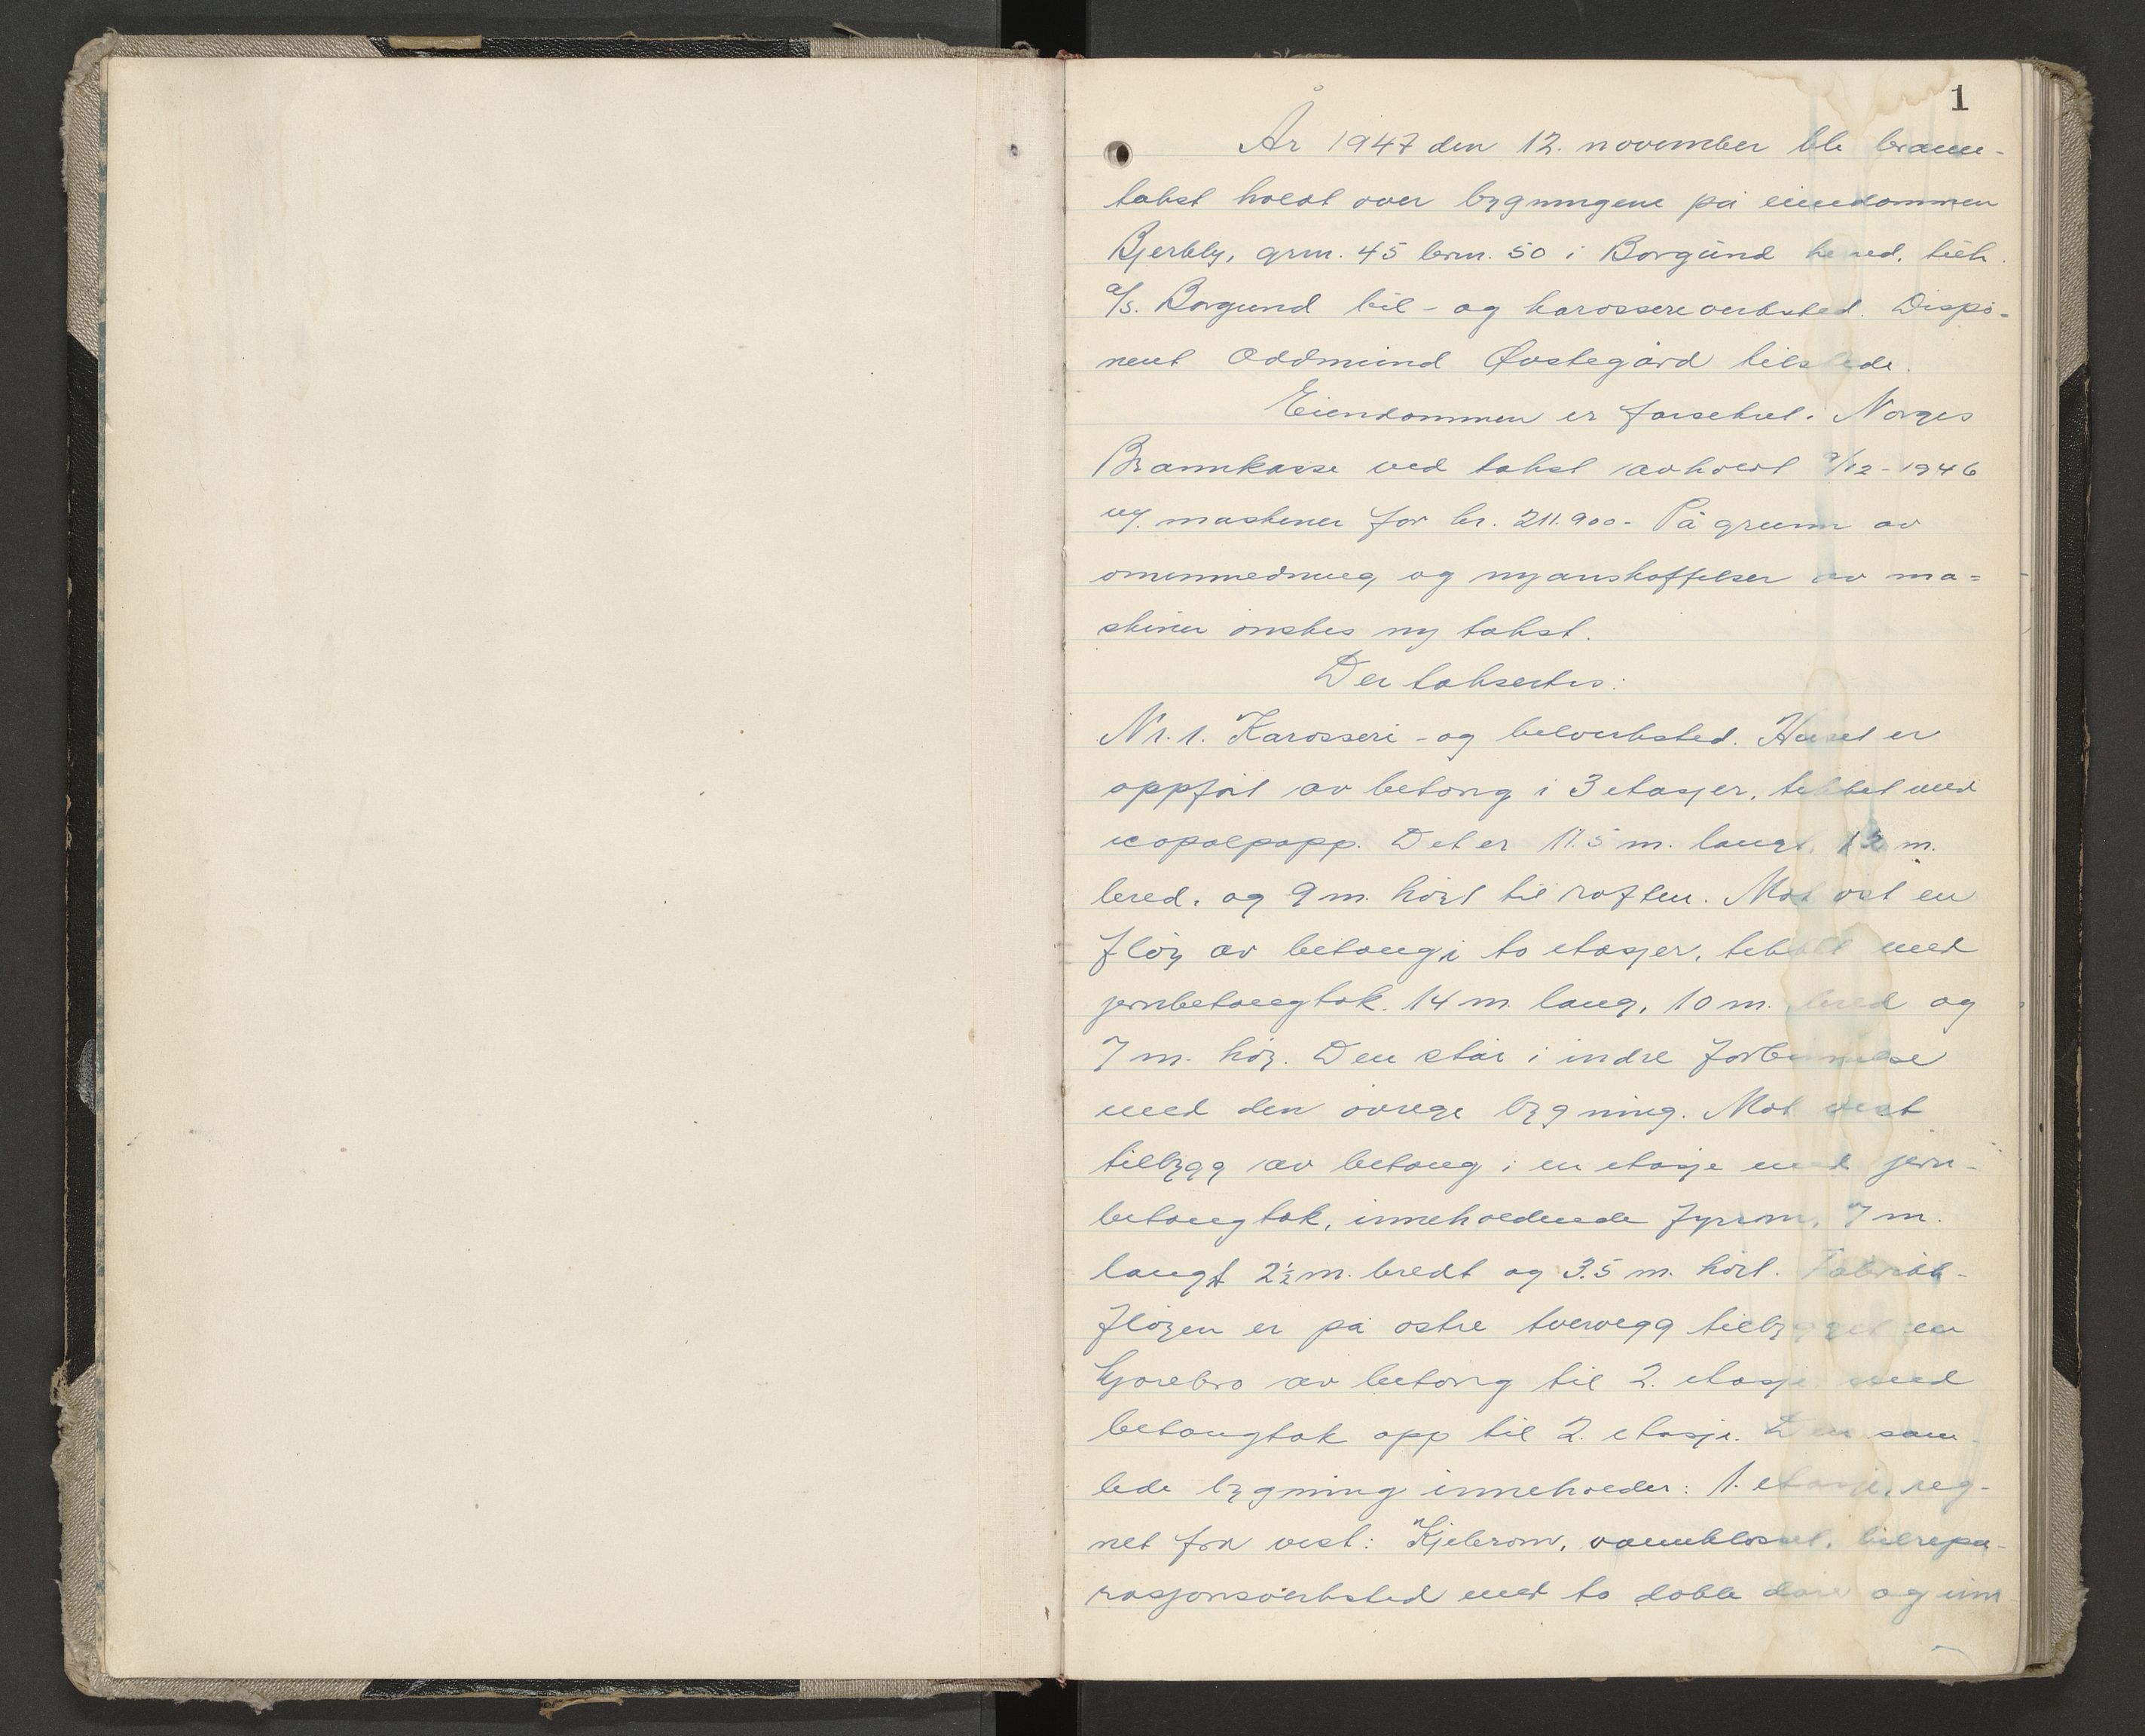 1
År 1947 den 12. november ble brann-
takst holdt over bygningene på eiendommen
Bjerkly, grnr. 45 brnr. 50 i Borgund herred, tilh.
a/s. Borgund bil- og karosseriverksted. Dispo-
nent Oddmund Øvstegård tilstede.
Eiendommen er forsikret i Norges
Brannkasse ved takst avholdt /12-1946
og maskiner for kr. 211.900- På grunn av
ominnredning og nyanskaffelser av ma=
skiner ønskes ny takst.
Der taksertes:
Nr. 1. Karosseri- og bilverksted. Huset er
oppført av betong i 3 etasjer, tekket med
icopalpapp. Det er 11.5 m. langt, 12 m.
bred, og 9 m. høgt til raften. Mot øst en
fløy av betong i to etasjer, tekket med
jernbetongtak. 14 m. lang, 10 m. bred og
7 m. høy. Den står i indre forbinnelse
med den øvrige bygning. Mot vest
tilbygg av betong i en etasje med jern-
betongtak, inneholdende fyrrom, 7 m.
langt 2½ m. bredt og 3.5 m. høgt. Fabrikk-
fløyen er på østre tvervegg tilbygget en
kjørebro av betong til 2. etasje med
betongtak opp til 2. etasje. Den sam-
lede bygning inneholder: 1. etasje, reg-
net fra vest: Kjelerom, vannklosset, bilrepa-
rasjonsverksted med to doble dører og inn